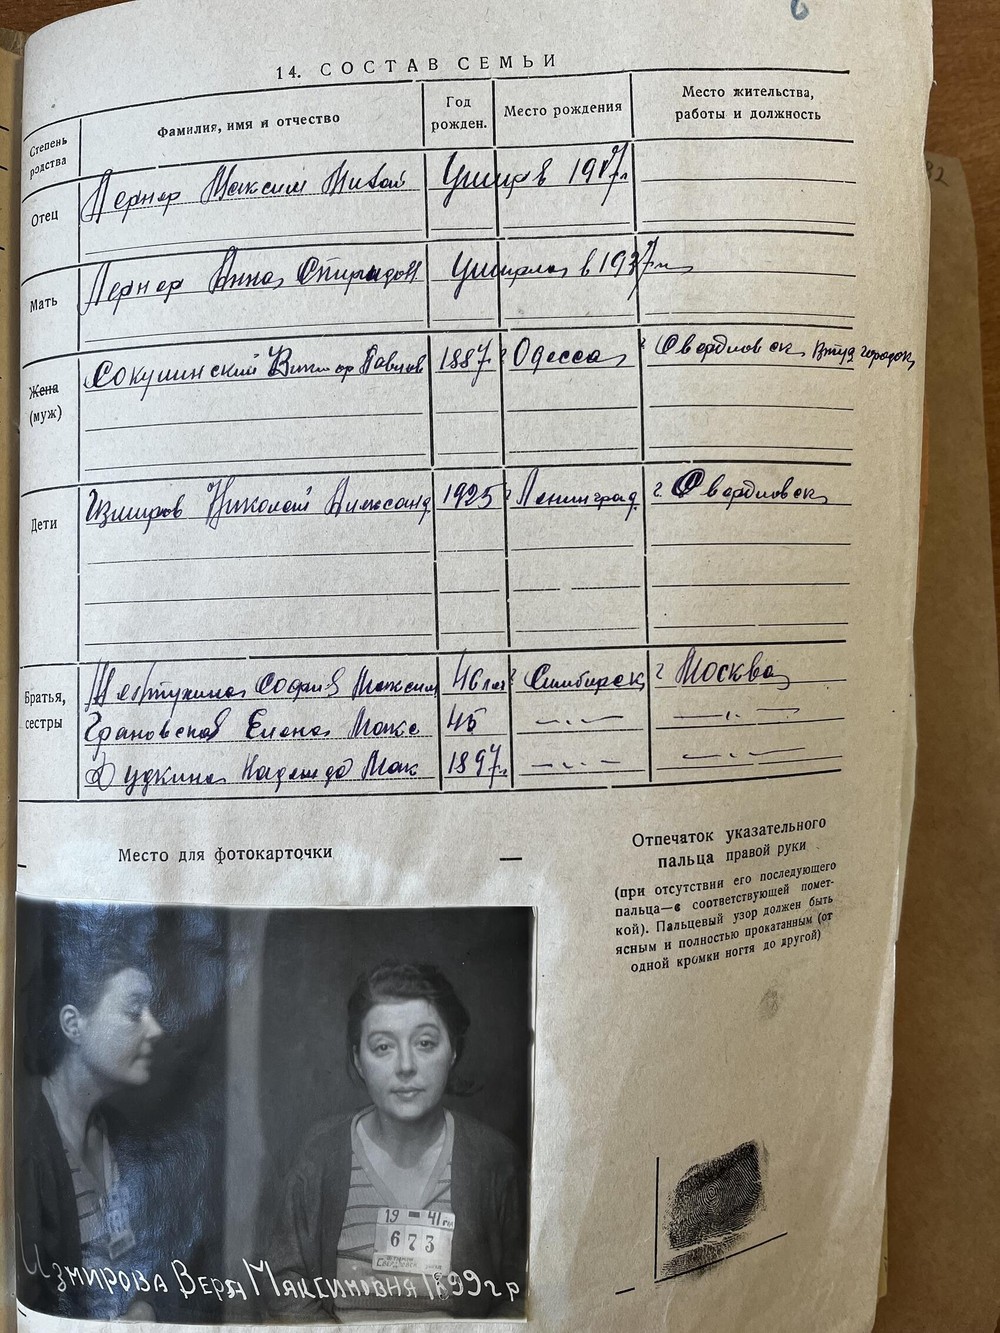 6
14. СОСТАВ СЕМЬИ
Степень родства
Фамилия, имя и отчество
Год рожден.
Место рождения
Место жительства, работы и должность
Отец
Лернер Максим Никол
Умер в 1917г.
Мать
Лернер Анна Спиридон
Умерла в 1937г
Жена
(муж)
Сокушинский Виктор Павлов
1887
г Одесса
г Свердловск Втуз городок
Дети
Измиров Николай Александ
1925
г Ленинград
г. Свердловск
Братья, сестры
София Максим
46 лет
г Симбирск
г Москва
Грановская Елена Макс
45
Дудкина Надежда Мак
1897г.
Место для фотокарточки
Отпечаток указательного
пальца правой руки
(при отсутствии его последующего
пальца—с соответствующей помет-
кой). Пальцевый узор должен быть
ясным и полностью прокатанным (от
одной кромки ногтя до другой)
19 41
673
Измирова Вера Максимовна 1899 г р